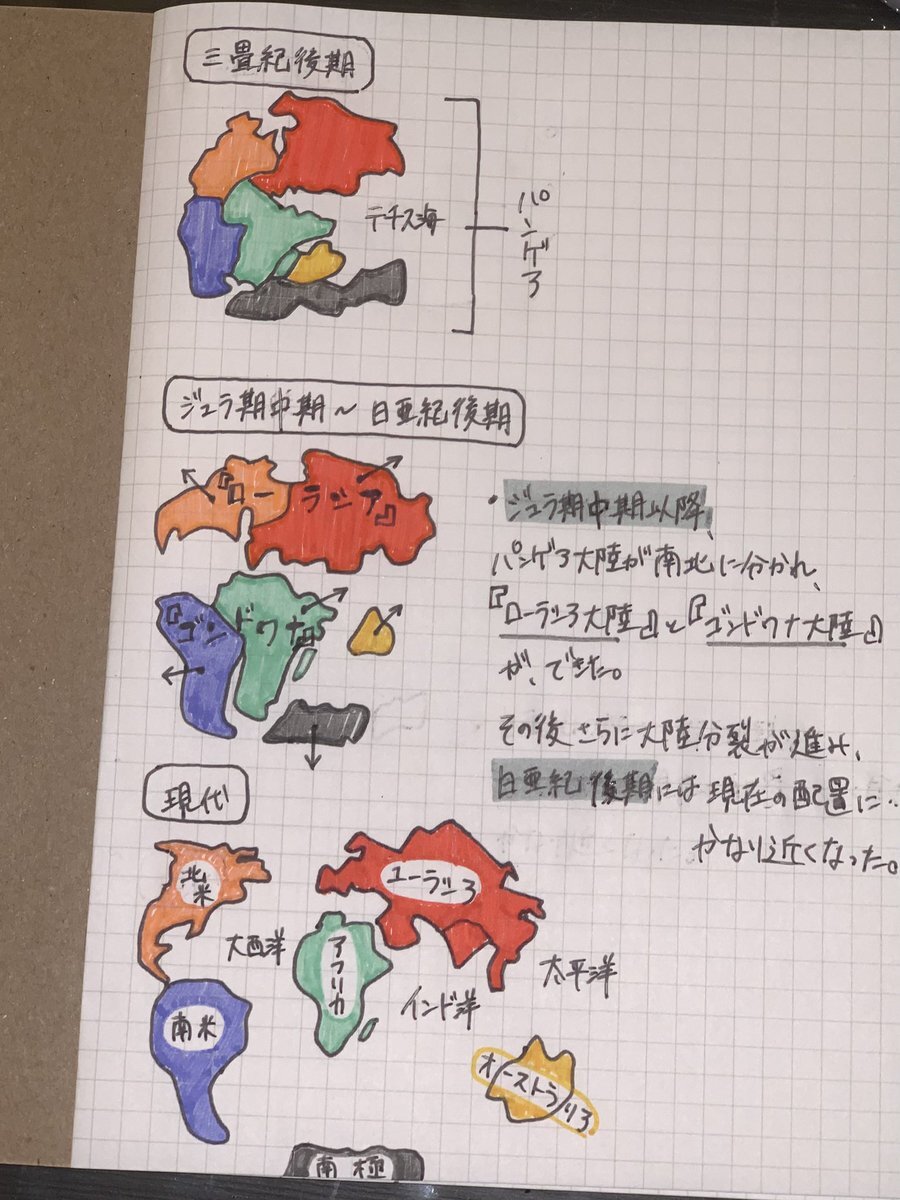 三畳紀後期
テチス海
パンゲア
ジュラ期中期～白亜紀後期
『ローラシア』
『ゴンドワナ』
・ジュラ期中期以降、
パンゲア大陸が南北に分かれ、
『ローラシア大陸』と『ゴンドワナ大陸』
が、できた。
その後さらに大陸分裂が進み、
白亜紀後期には現在の配置に‥
かなり近くなった。
現代
北米
ユーラシア
大西洋
アフリカ
太平洋
インド洋
南米
オーストラリア
南極